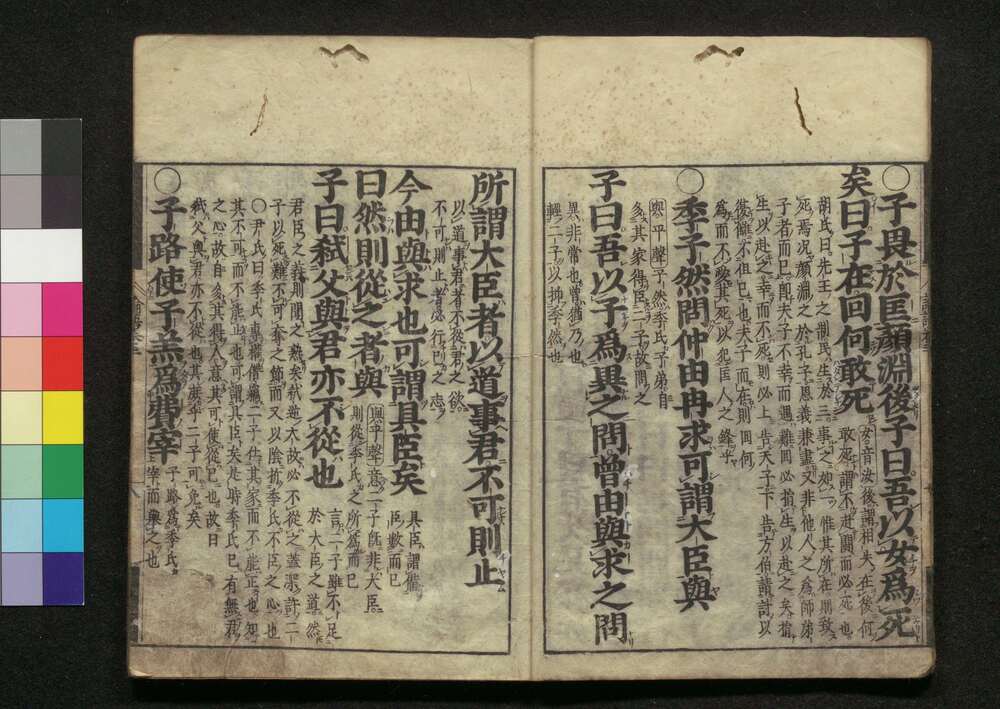 ○子畏於匡顔淵後子曰吾以女爲死
矣曰子在回何敢死
女音汝後謂相失在後何
敢死謂不赴鬬而必死也
胡氏曰先王之制民生於三事之如一惟其所在則致
死焉况顔淵之於孔子恩義兼盡又非他人之爲師弟
子者而已即夫子不幸而遇難回必捐生以赴之矣捐
生以赴之幸而不死則必上告天子下告方伯請討以
復讎不但已也夫子而在則回何
爲而不愛其死以犯匡人之鋒乎
○季子然問仲由冉求可謂大臣與
與平聲子然季氏子弟自
多其家得臣二子故問之
子曰吾以子爲異之問曾由與求之問
異非常也曾猶乃也
輕二子以抑季然也
所謂大臣者以道事君不可則止
以道事君者不從君之欲
不可則止者必行己之志
今由與求也可謂具臣矣
具臣謂備
臣數而已
曰然則從之者與
與平聲意二子既非大臣
則從季氏之所爲而已
子曰弑父與君亦不從也
言二子雖不足
於大臣之道然
君臣之義則聞之熟矣弑逆大故必不從之蓋深許二
子以死難不可奪之節而又以陰折季氏不臣之心也
○尹氏曰季氏專權僭竊二子仕其家而不能正也知
其不可而不能止也可謂具臣矣是時季氏已有無君
之心故自多其得人意其可使從己也故曰
弑父與君亦不從也其庶乎二子可免矣
○子路使子羔爲費宰
子路爲季氏
宰而舉之也